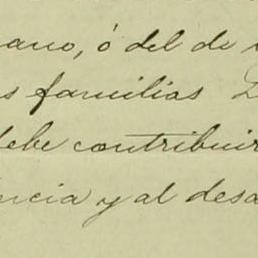 ano, ó del de
s familias
debe contribuir
ncia y al desa